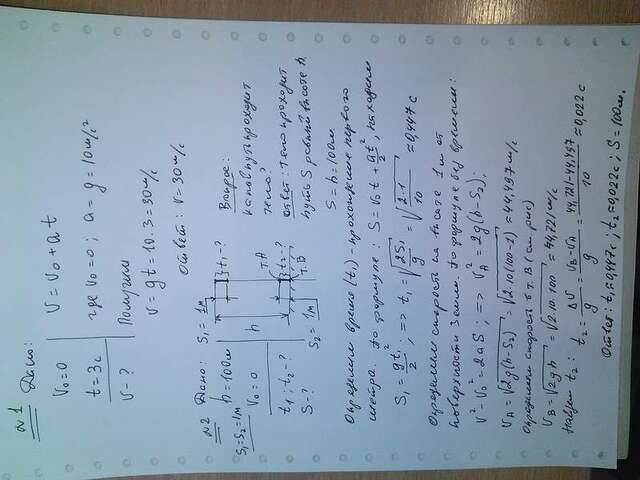 №1 Дано:
v₀=0
t=3с
v-?
v=v₀+at
где v₀=0; a=g=10м/с²
Получили
v=gt=10·3=30м/с
Ответ: v=30м/с
№2 Дано:
h=100м
S₁=S₂=1м
v₀=0
t₁-t₂-?
S-?
S₁=1м
t₁-?
т.А
h
t₂-?
т.В
S₂=1м
Вопрос:
какой путь проходит
тело?
ответ: тело проходит
путь S равный высоте h
S=h=100м
Определяем время (t₁) - прохождение первого
метра. По формуле: S=v₀t+at²/2, находим
S₁=gt₁²/2; => t₁=√(2S₁/g)=√(2·1/10)=0,447с
Определяем скорость на высоте 1м от
поверхности Земли. По формуле без времени:
v²-v₀²=2aS; => v_A²=2g(h-S₂);
v_A=√(2g(h-S₂))=√(2·10(100-1))=44,497м/с
Определяем скорость в т.В (см рис)
v_B=√(2gh)=√(2·10·100)=44,721м/с
Найдём t₂: t₂=Δv/g=(v_B-v_A)/g=(44,721-44,497)/10=0,022с
Ответ: t₁=0,447с; t₂=0,022с; S=100м.